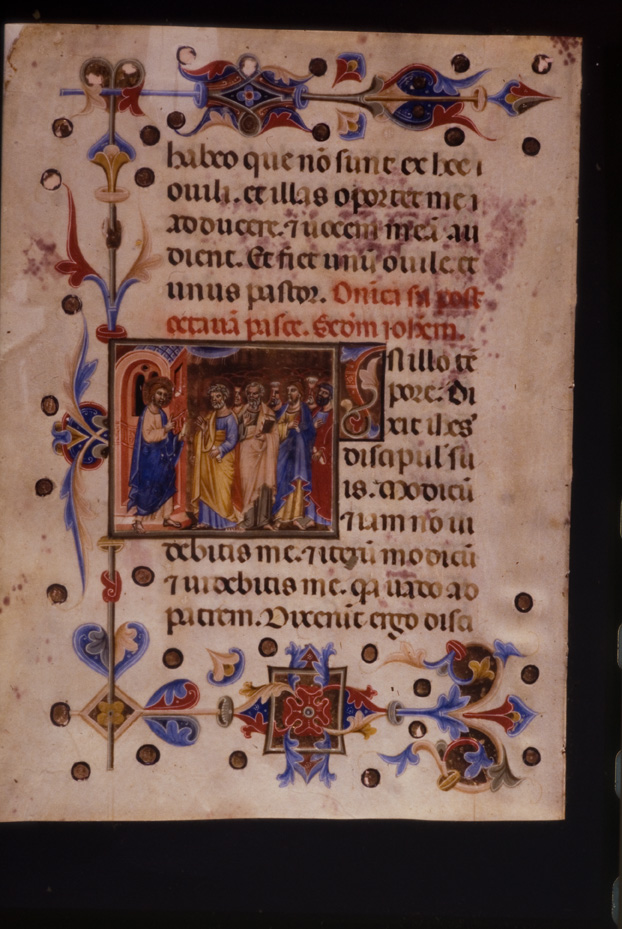 habeo que nō sunt ex hoc
ouili. et illas oportet me
adducere. ⁊ uocem meā au
dient. Et fiet unū ouile et
unus pastor. Dnica post
octauā pasce. Scdm iohem.
In illo tē
pore. Di
xit ihes'
discipul' su
is. Modicū
⁊ iam nō ui
debitis me. ⁊ iterū modicū
⁊ uidebitis me. q̄a uado ad
patrem. Dixerūt ergo disci